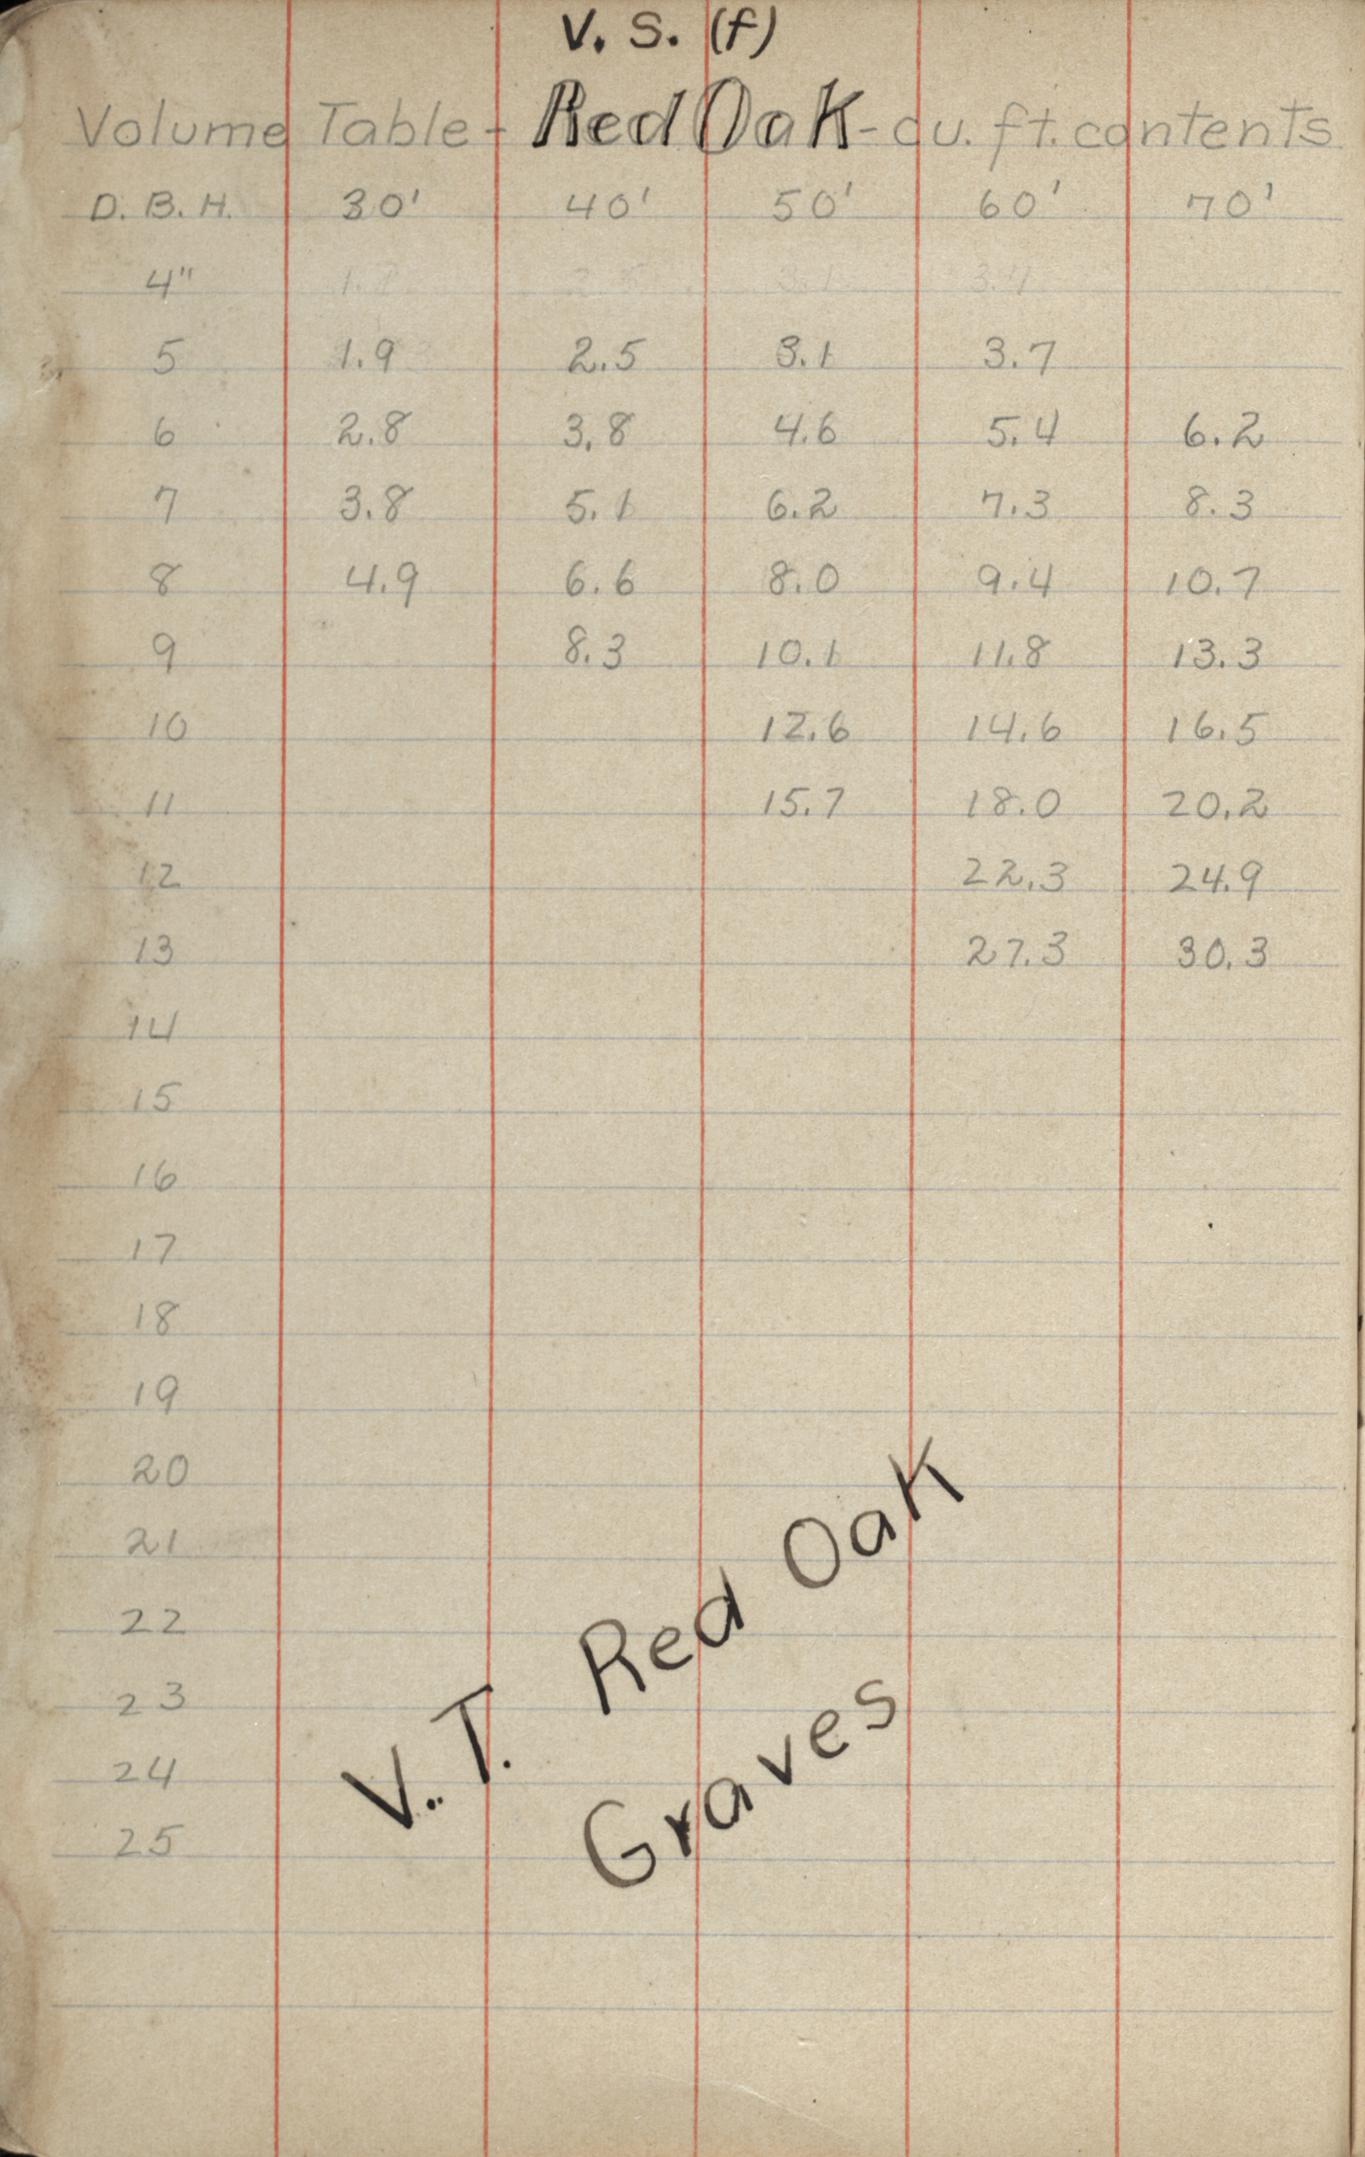 V. S. (f)
Volume Table - Red Oak - cu. ft. contents
D. B. H. 30' 40' 50' 60' 70'
4"
5 1.9 2.5 3.1 3.7
6 2.8 3.8 4.6 5.4 6.2
7 3.8 5.1 6.2 7.3 8.3
8 4.9 6.6 8.0 9.4 10.7
9 8.3 10.1 11.8 13.3
10 12.6 14.6 16.5
11 15.7 18.0 20.2
12 22.3 24.9
13 27.3 30.3
14
15
16
17
18
19
20
21
22
23
24
25
V. T. Red Oak
Graves